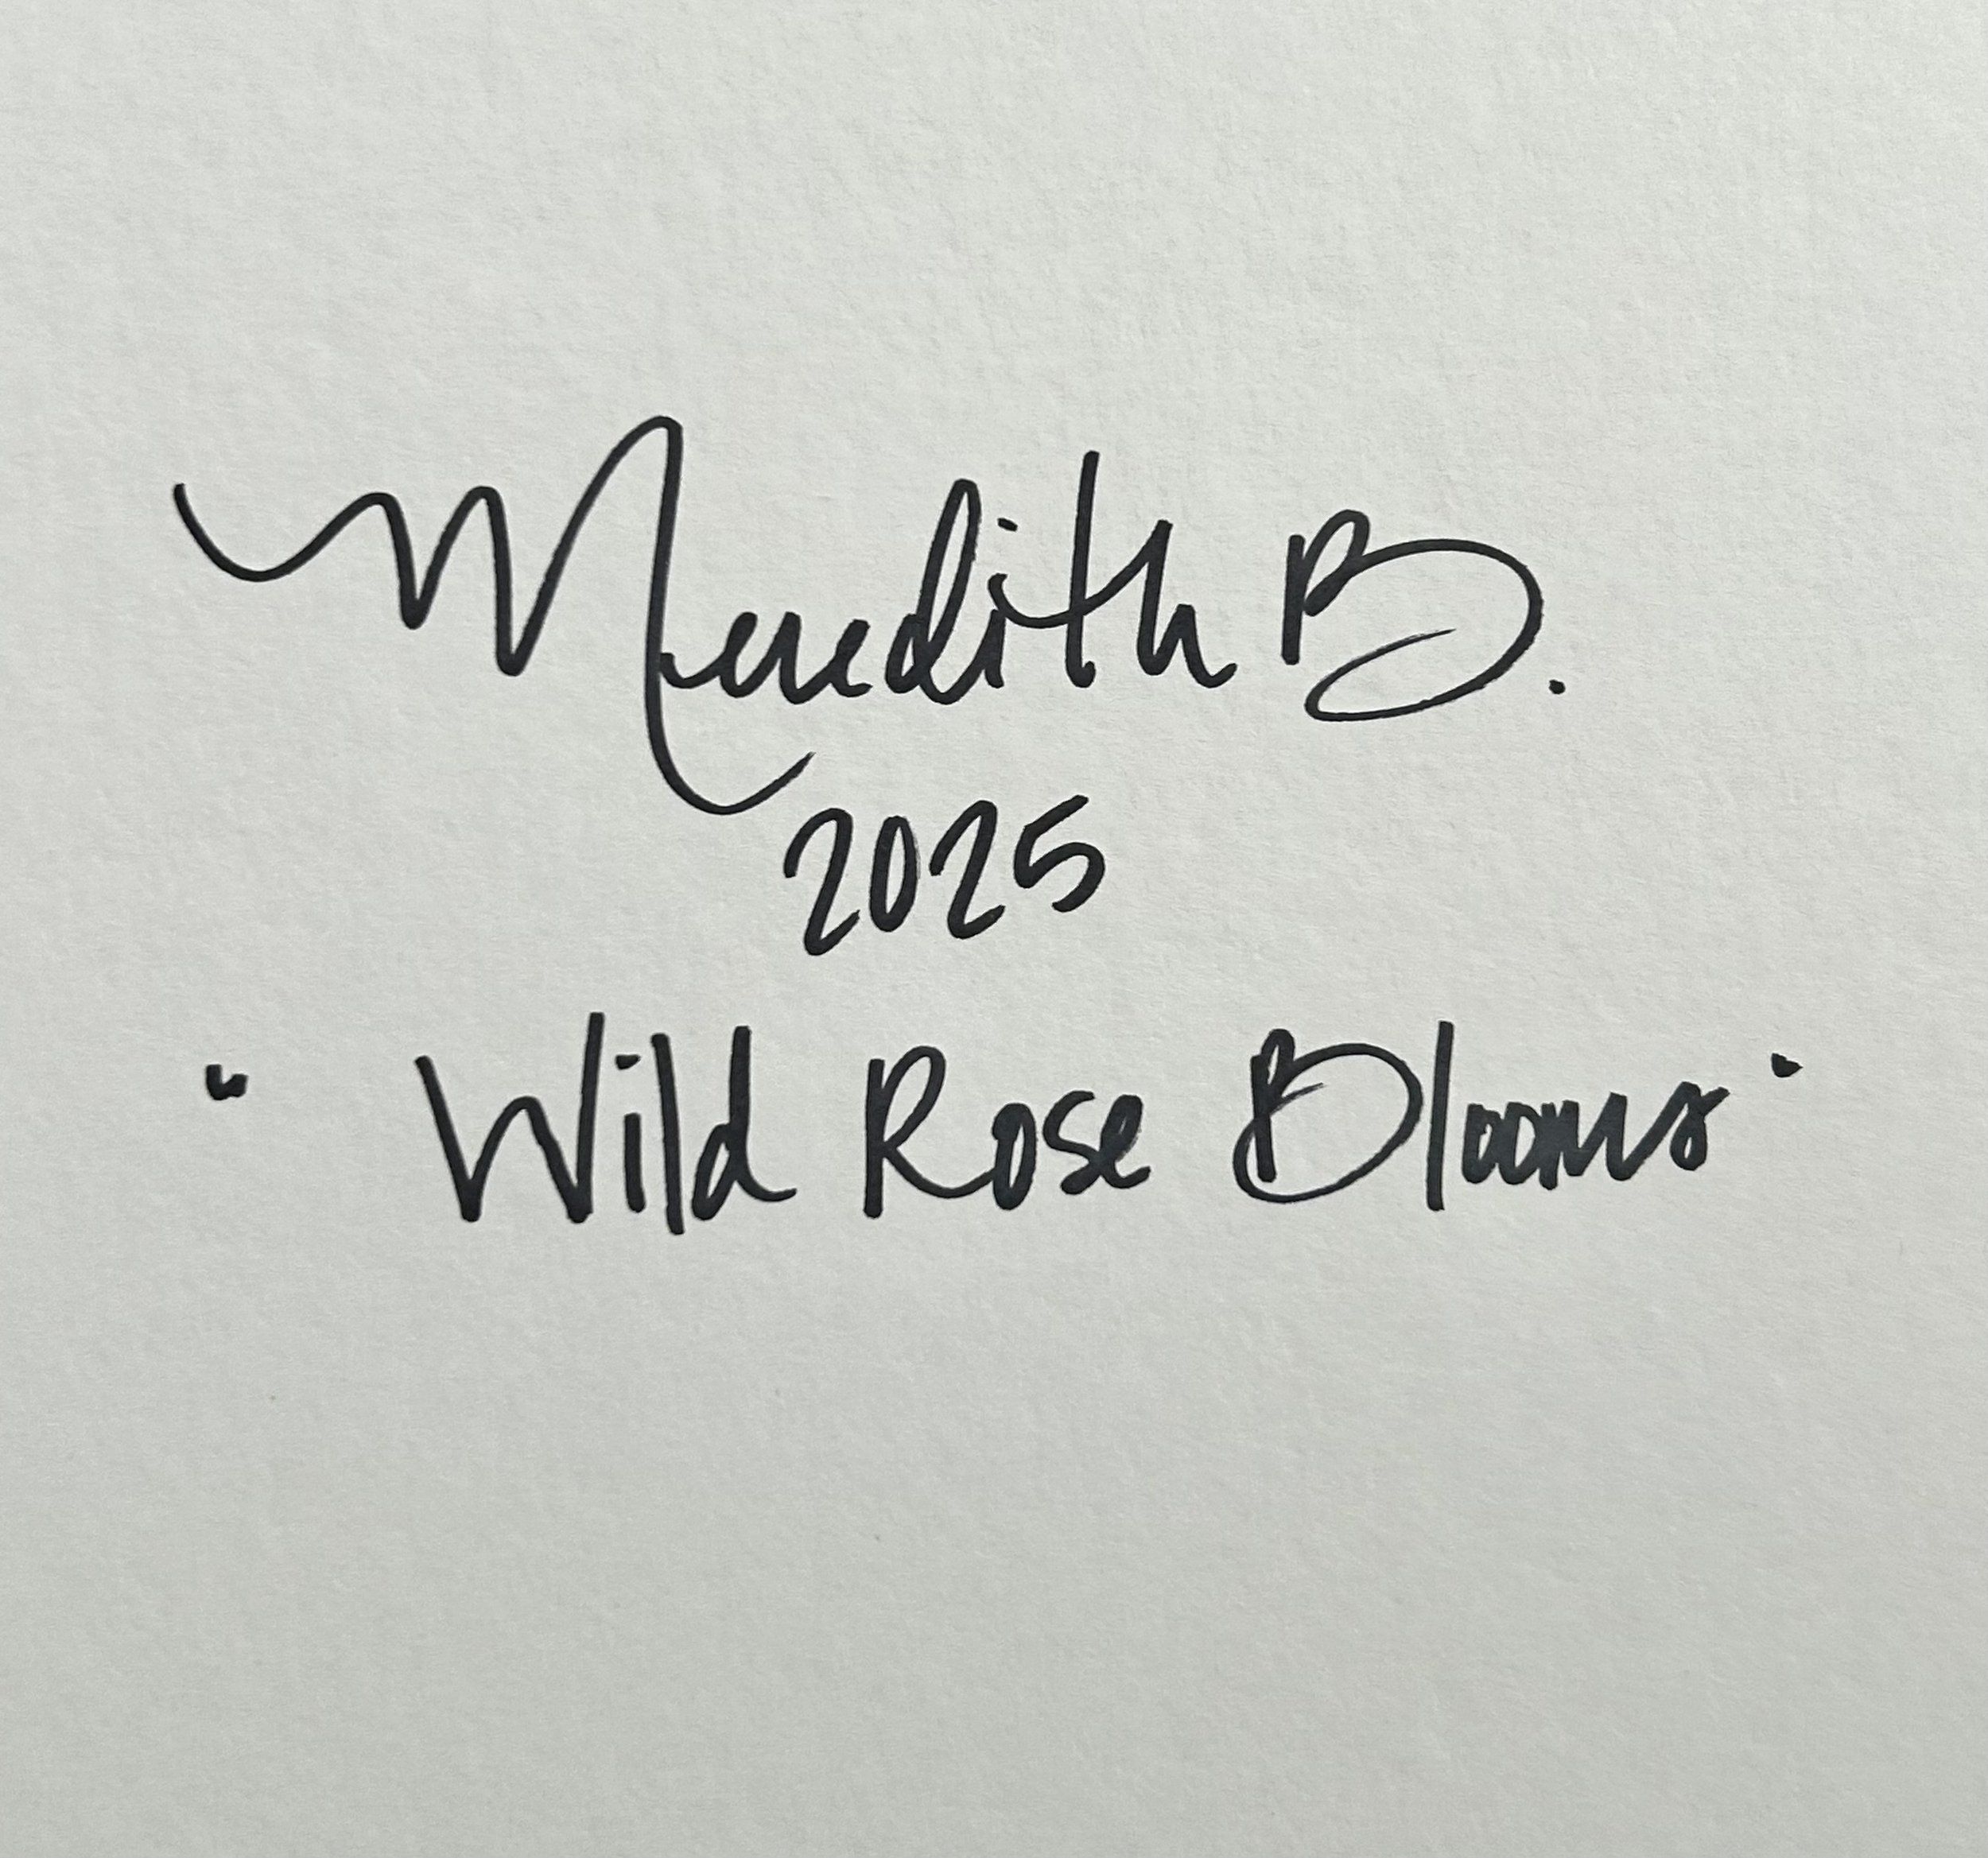 Meredith B.
2025
"Wild Rose Blooms"